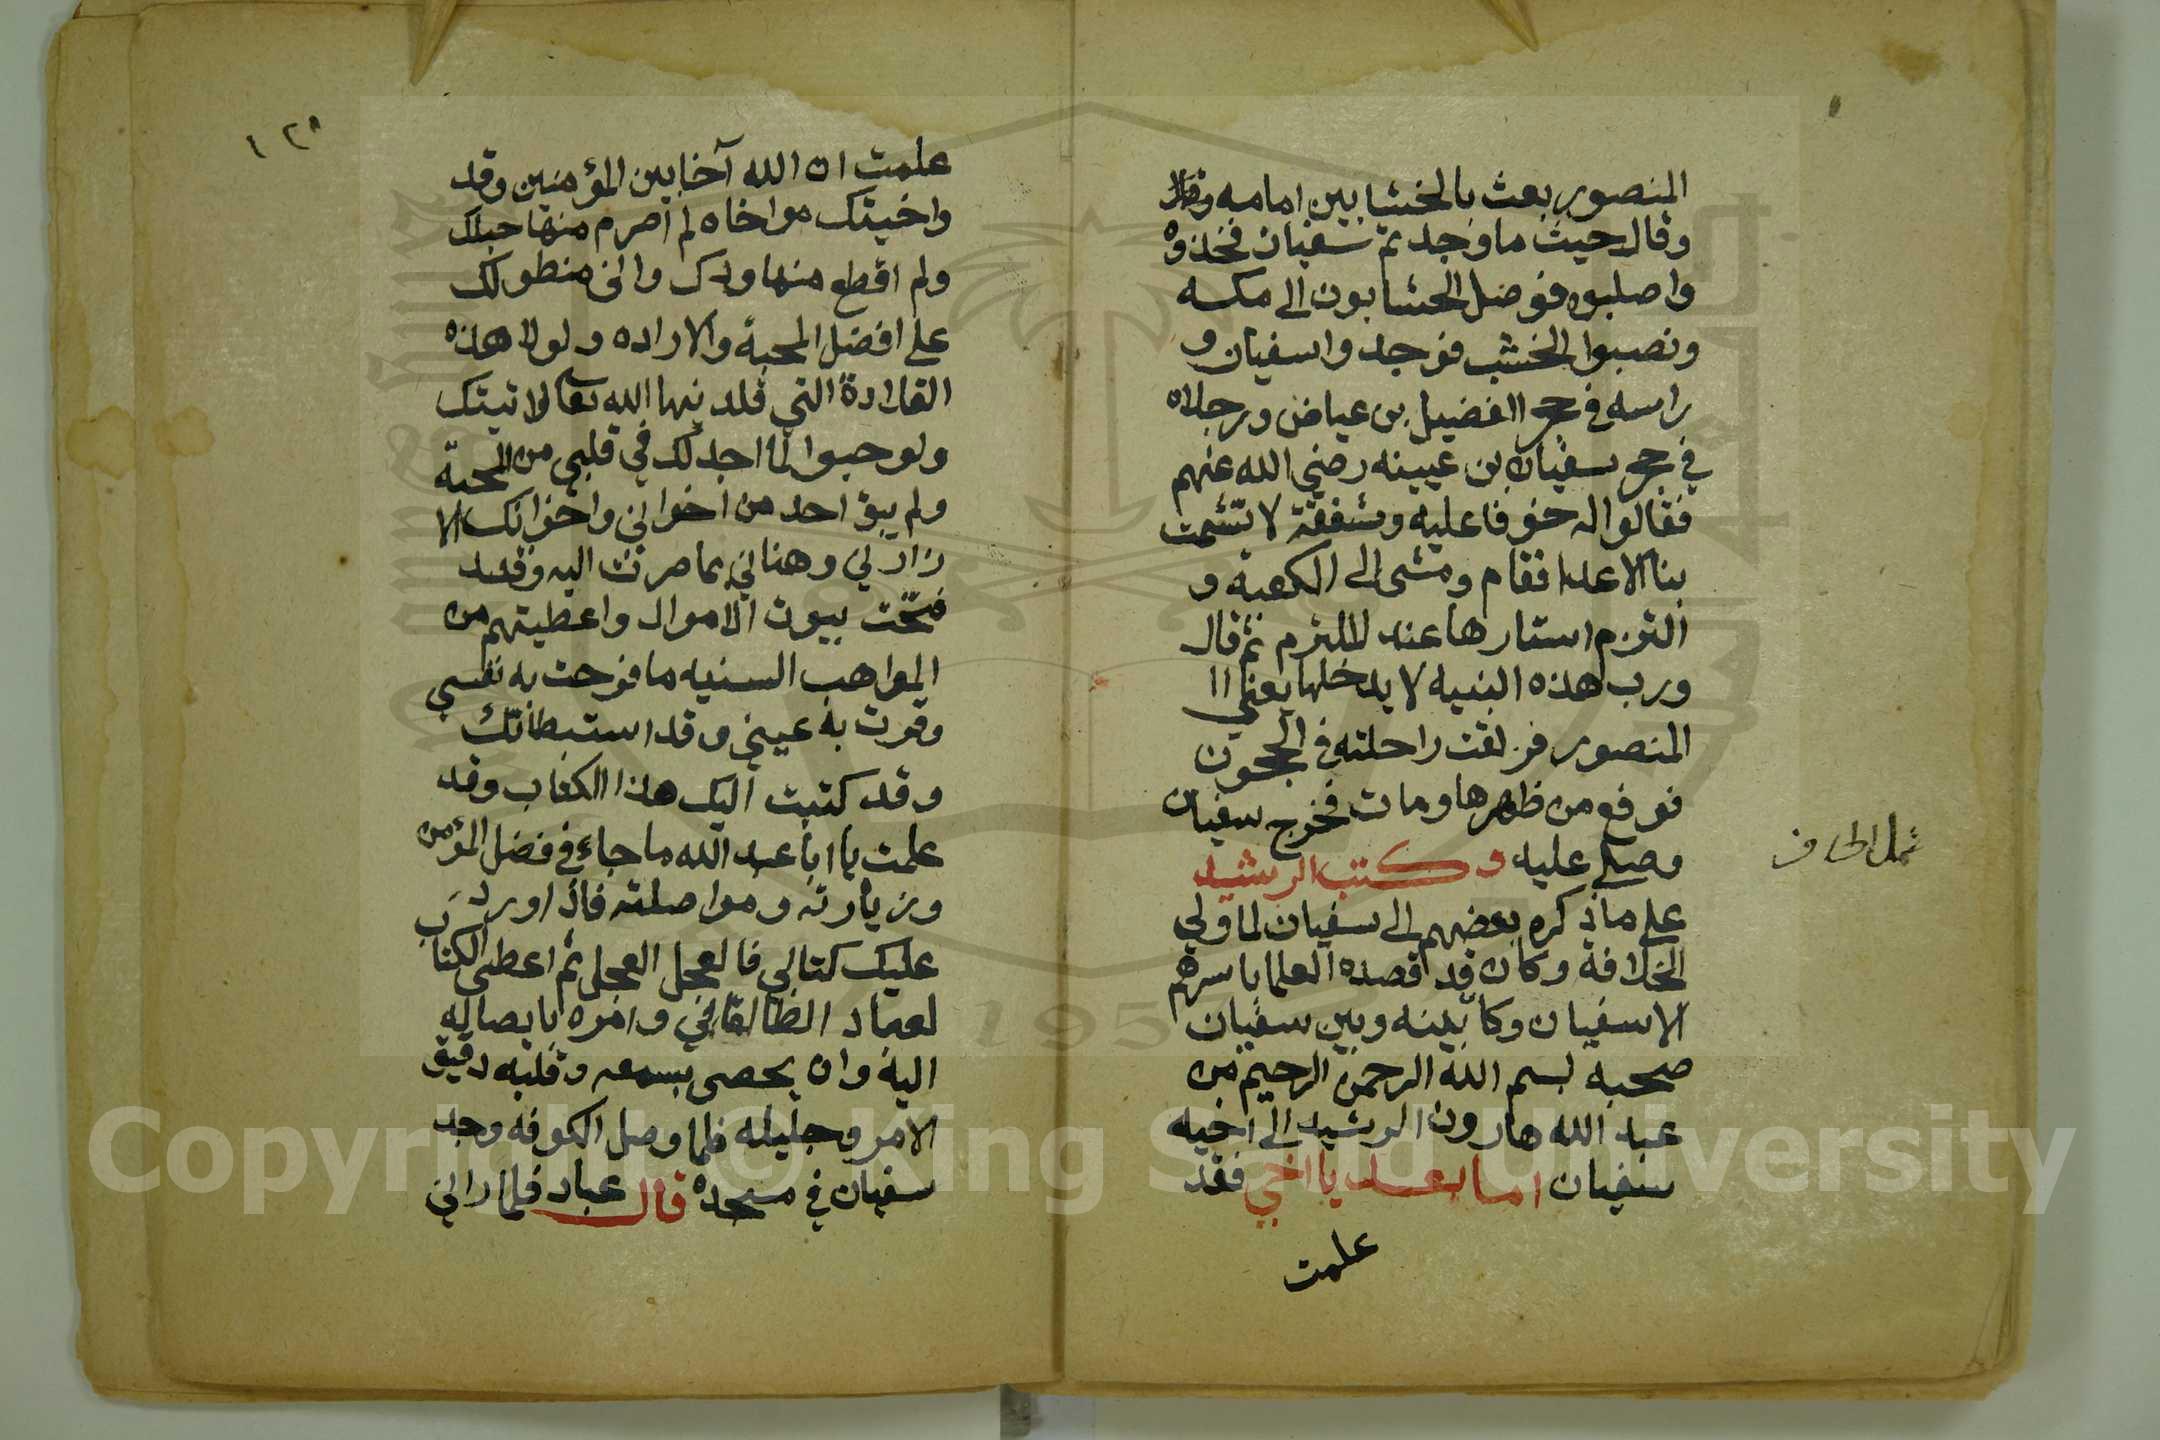 المنصور بعث بالخشابين امامه وقال
وقال حيث ما وجدتم سفيان فخذوه
واصلبوه فوصل الخشابون الى مكه
ونصبوا الخشب فوجدوا سفيان و
راسه في حجر الفضيل بن عياض ورجلاه
في حجر سفيان بن عيينه رضي الله عنهم
فقالوا له خوفا عليه وشفقة لا تشمت
بنا الاعدا فقام ومشى الى الكعبة و
التزم استارها عند الملتزم ثم قال
ورب هذه البنيه لا يدخلها يعني اا
المنصور فزلقت راحلته في الحجون
فوقع من ظهرها ومات فخرج سفيان
وصلى عليه وكتب الرشيد
على ما ذكره بعضهم الى سفيان لما ولي
الخلافة وكان قد قصده العلما باسرهم
الا سفيان وكا بينه وبين سفيان
صحبه بسم الله الرحمن الرحيم من
عبد الله هارون الرشيد الى اخيه
سفيان اما بعد يا اخي فقد
علمت
١٢٨
علمت ان الله آخا بين المؤمنين وقد
واخيتك مواخاه لم اصرم منها حبلك
ولم اقطع منها ودك واني منطو لك
على افضل المحبة والاراده ولولا هذه
القلادة التي قلدنيها الله تعالى لاتيتك
ولو حبوا لما اجد لك في قلبي من المحبة
ولم يبق احد من اخواني واخوانك الا
زارني وهناني بما صرت اليه وقد
فتحت بيوت الاموال واعطيتهم من
المواهب السنيه ما فرحت به نفسي
وقرت به عيني وقد استبطاتك
وقد كتبت اليك هذا الكتاب وقد
علمت يا ابا عبد الله ما جاء في فضل المؤمن
وزيارته ومواصلته فاذا ورد
عليك كتابي فالعجل العجل ثم اعطى الكتاب
لعباد الطالقاني وامره بايصاله
اليه وان يحصى بسمعه وقلبه دقيق
الامر وجليله فلما وصل الكوفه وجد
سفيان في مسجده قال عباد فلما راني
Copyright © King Saud University
1957